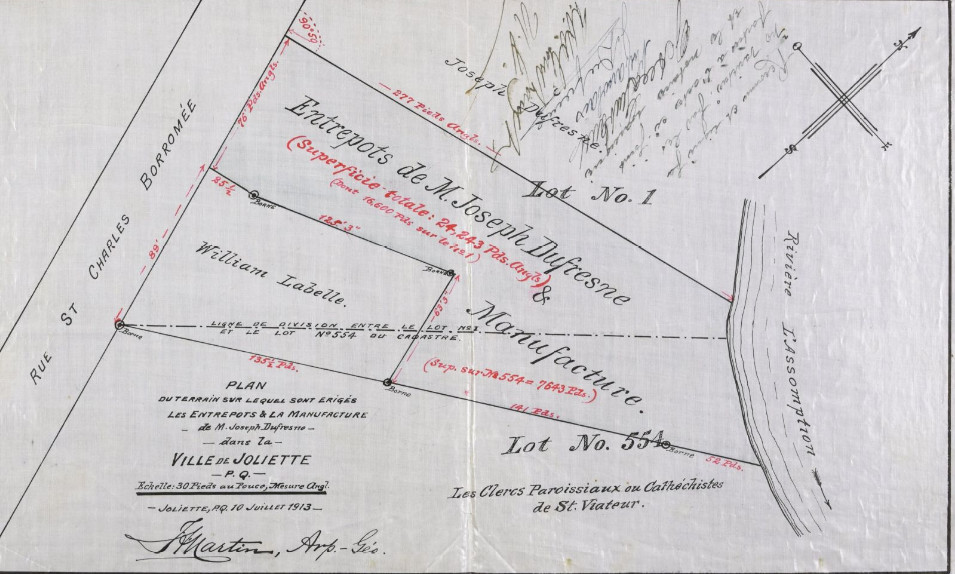 90°50'
70 Pds. Angls.
— 277 Pieds Angl. —
Joseph Dufresne.
Lot No. 1
Entrepots de M. Joseph Dufresne
(Superficie totale: 24,243 Pds. Angls)
(Dont 16,600 Pds sur le lot 1)
&
Manufacture.
(Sup. sur No 554 = 7643 Pds.)
25 ½
Borne
125'3"
Borne
63'3
William Labelle.
— 89' —
RUE ST CHARLES BORROMÉE
Borne
LIGNE DE DIVISION ENTRE LE LOT No 1
ET LE LOT No 554 DU CADASTRE.
135½ Pds.
Borne
141 Pds.
Borne
52 Pds.
Lot No. 554
Les Clercs Paroissiaux ou Cathéchistes
de St. Viateur.
Rivière L'Assomption
S
PLAN
DU TERRAIN SUR LEQUEL SONT ERIGÉS
LES ENTREPOTS & LA MANUFACTURE
— de M. Joseph Dufresne —
— dans la —
VILLE DE JOLIETTE
— P.Q. —
Echelle: 30 Pieds au Pouce, Mesure Angl.
— JOLIETTE, P.Q. 10 JUILLET 1913 —
Martin, Arp.-Géo.